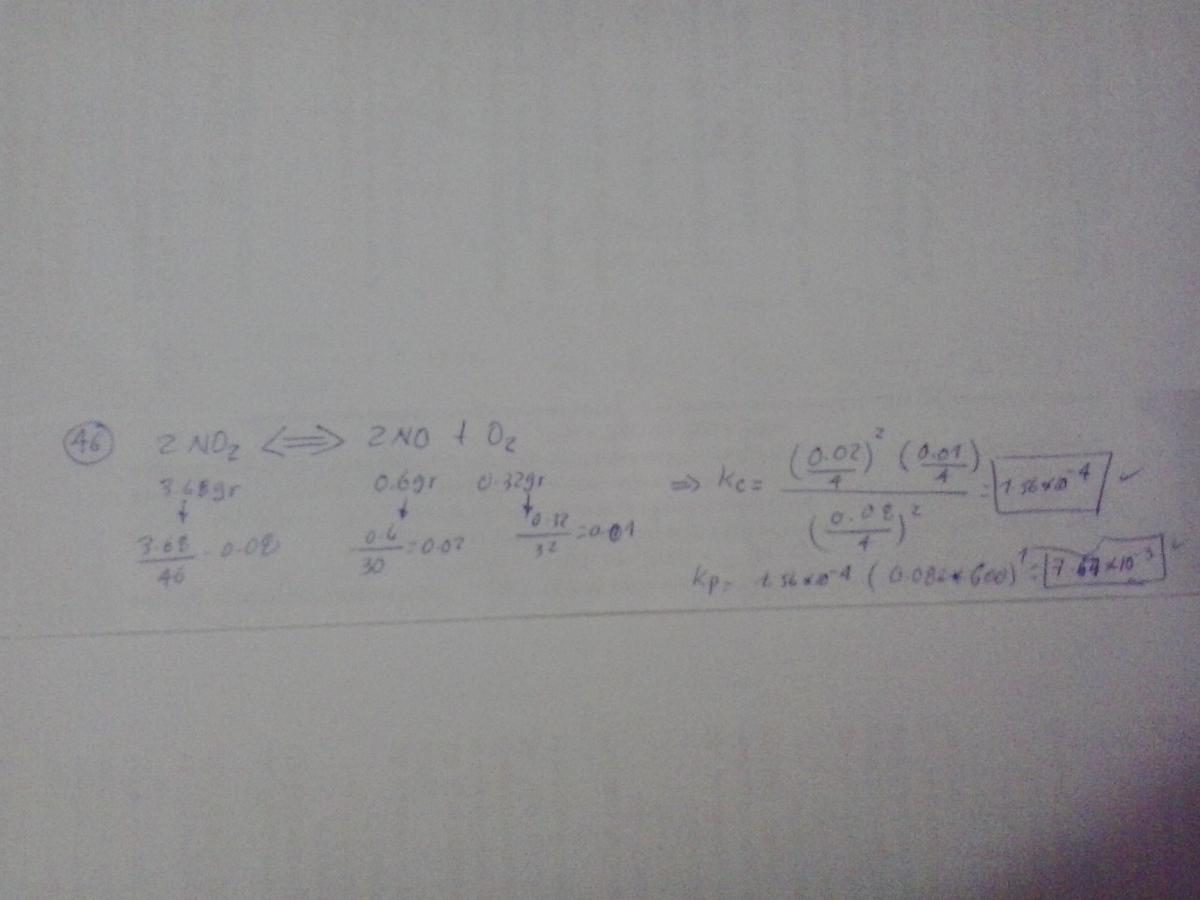 46 2 NO2 <=> 2 NO + O2
3.68gr 0.6gr 0.32gr
3.68/46 = 0.08 0.6/30 = 0.02 0.32/32 = 0.01
=> Kc = (0.02/4)^2 (0.01/4) / (0.08/4)^2 = 1.56x10^-4 ✓
Kp = 1.56x10^-4 (0.082x600)^1 = 7.67x10^-3 ✓